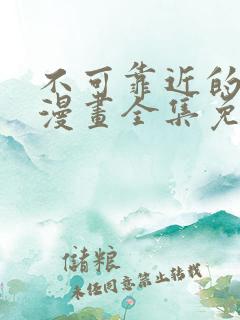 不可靠近的
漫畫全集免
儲粮
未经同意禁止转载